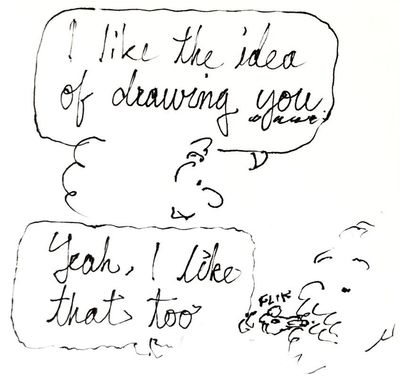 I like the idea
of drawing you
Yeah, I like
that too
FLIK